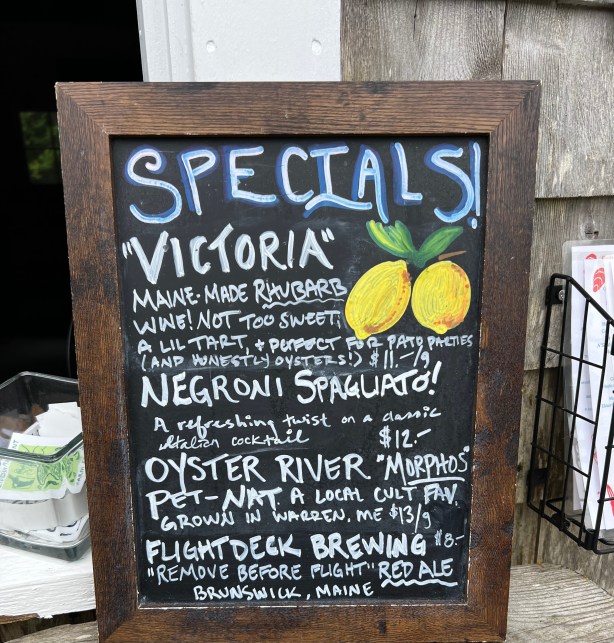 SPECIALS!
"VICTORIA"
MAINE-MADE RHUBARB
WINE! NOT TOO SWEET,
A LIL TART, + PERFECT FOR PATO PARTIES
(AND HONESTLY OYSTERS!) $11.-/g
NEGRONI SPAGLIATO!
A refreshing twist on a classic
Italian cocktail $12.-
OYSTER RIVER "MORPHOS"
PET-NAT A LOCAL CULT FAV
GROWN IN WARREN, ME $13/g
FLIGHTDECK BREWING $8.-
"REMOVE BEFORE FLIGHT" RED ALE
BRUNSWICK, MAINE